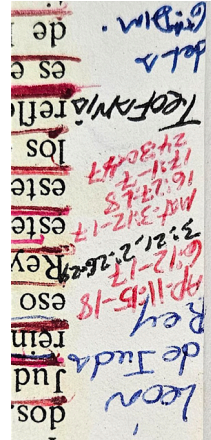 León
de Juda
Rey
AP. 11:15-18
6:12-17
3:21, 2:26-27
Mat. 3:12-17
17:1-7
TEOFANIA
de LA
dos,
Jud
rein
eso
Rey
este
este
los
refle
es e
de